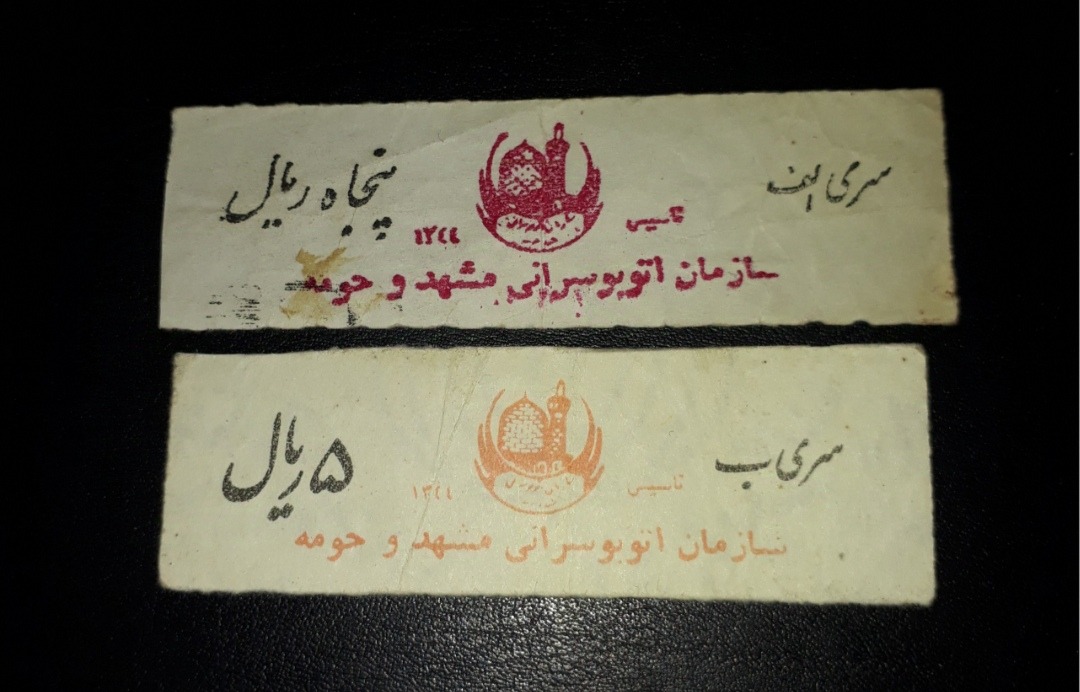 سری الف
پنجاه ریال
تاسیس ۱۳۴۴
سازمان اتوبوسرانی مشهد و حومه
سری ب
۵ ریال
تاسیس ۱۳۴۴
سازمان اتوبوسرانی مشهد و حومه